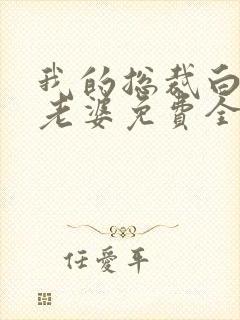 我的总裁白
老婆免费全
任愛平